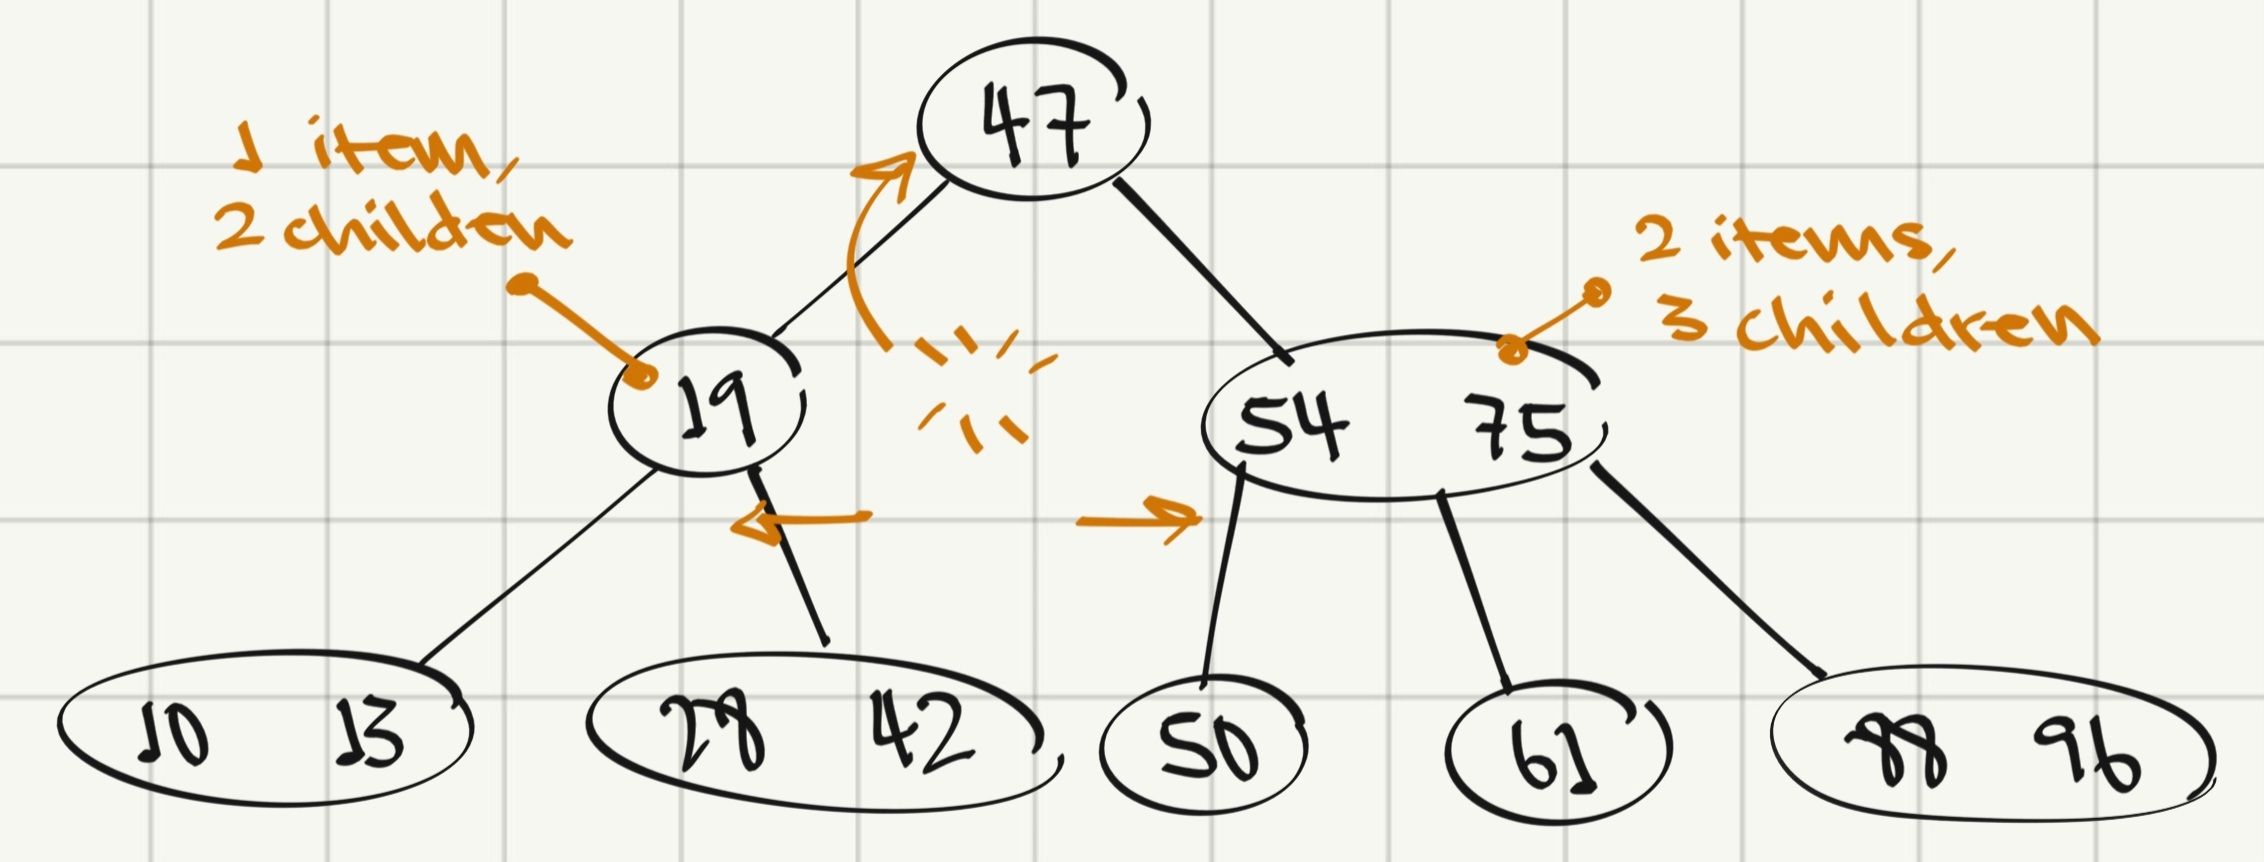 47
1 item,
2 childen
2 items,
3 children
19
54 75
10 13
28 42
50
61
88 96